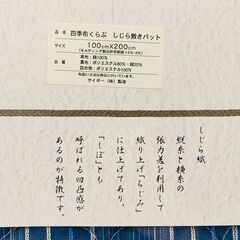 品名 四季布くらぶ しじら敷きパット
サイズ 100cm×200cm
(キルティング製品許容範囲+5%-3%)
品質
表地:綿100%
裏地:ポリエステル80%・綿20%
詰め物:ポリエステル100%
サイボー(株)製造
しじら織
縦糸と横糸の
張力差を利用して
織り上げ「ちぢみ」
に仕上げてあり、
「しぼ」とも
呼ばれる凹凸感が
あるのが特徴です。